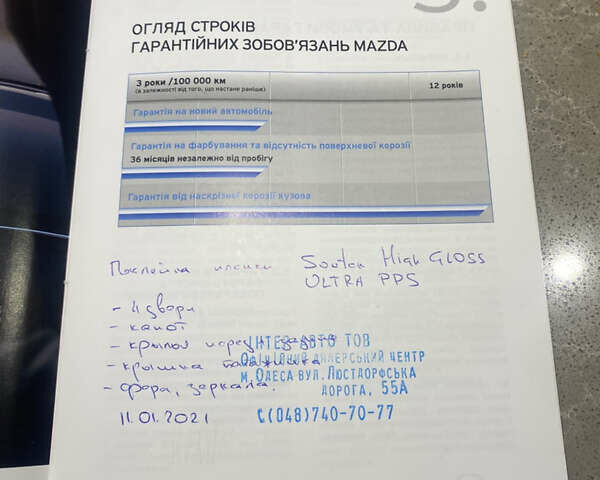 ОГЛЯД СТРОКІВ
ГАРАНТІЙНИХ ЗОБОВ'ЯЗАНЬ MAZDA
3 роки /100 000 км
(в залежності від того, що настане раніше)
12 років
Гарантія на новий автомобіль
Гарантія на фарбування та відсутність поверхневої корозії
36 місяців незалежно від пробігу
Гарантія від наскрізної корозії кузова
Поклейка пленки High GLOSS
ULTRA PPS
- 4 двери
- капот
- крылья
- крышка багажника
- фара, зеркала.
11.01.2021
ТОВ
Офіційний дилерський центр
м. Одеса вул. Люстдорфська
дорога, 55А
с(048)740-70-77